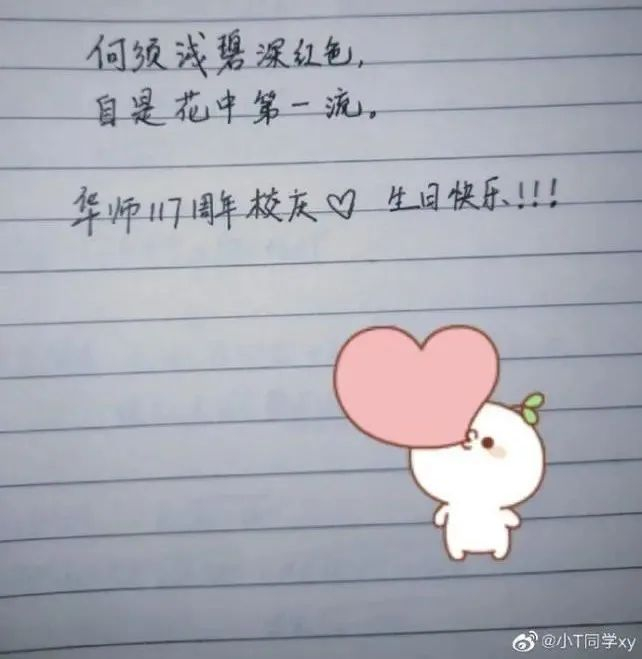 何须浅碧深红色,
自是花中第一流。
华师117周年校庆♡ 生日快乐!!!
@小T同学xy